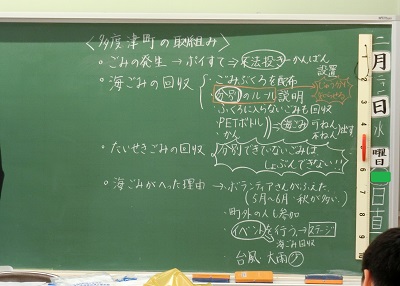 〈多度津町の取組み〉
・ごみの発生→ポイすて⇒不法投き-かんばん設置
・海ごみの回収
・ごみぶくろを配布
・分別のルール説明
・ふくろに入らないごみも回収
PETボトル
かん
海ごみ
可ねん
不ねん
出す
・たいせきごみの回収
分別できていないごみは
しょぶんできない!!
・海ごみがへった理由→ボランティアさんがふえた。
(5月~6月・秋が多い)
→町外の人も参加
→イベントを行う→ステージ
海ごみ回収
→台風 大雨
二
月
日
水
曜
日
日
直